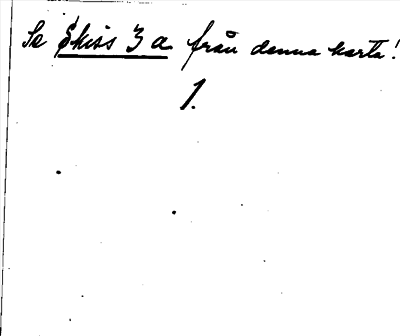 Se Skiss 3 a från denna karta!
1.